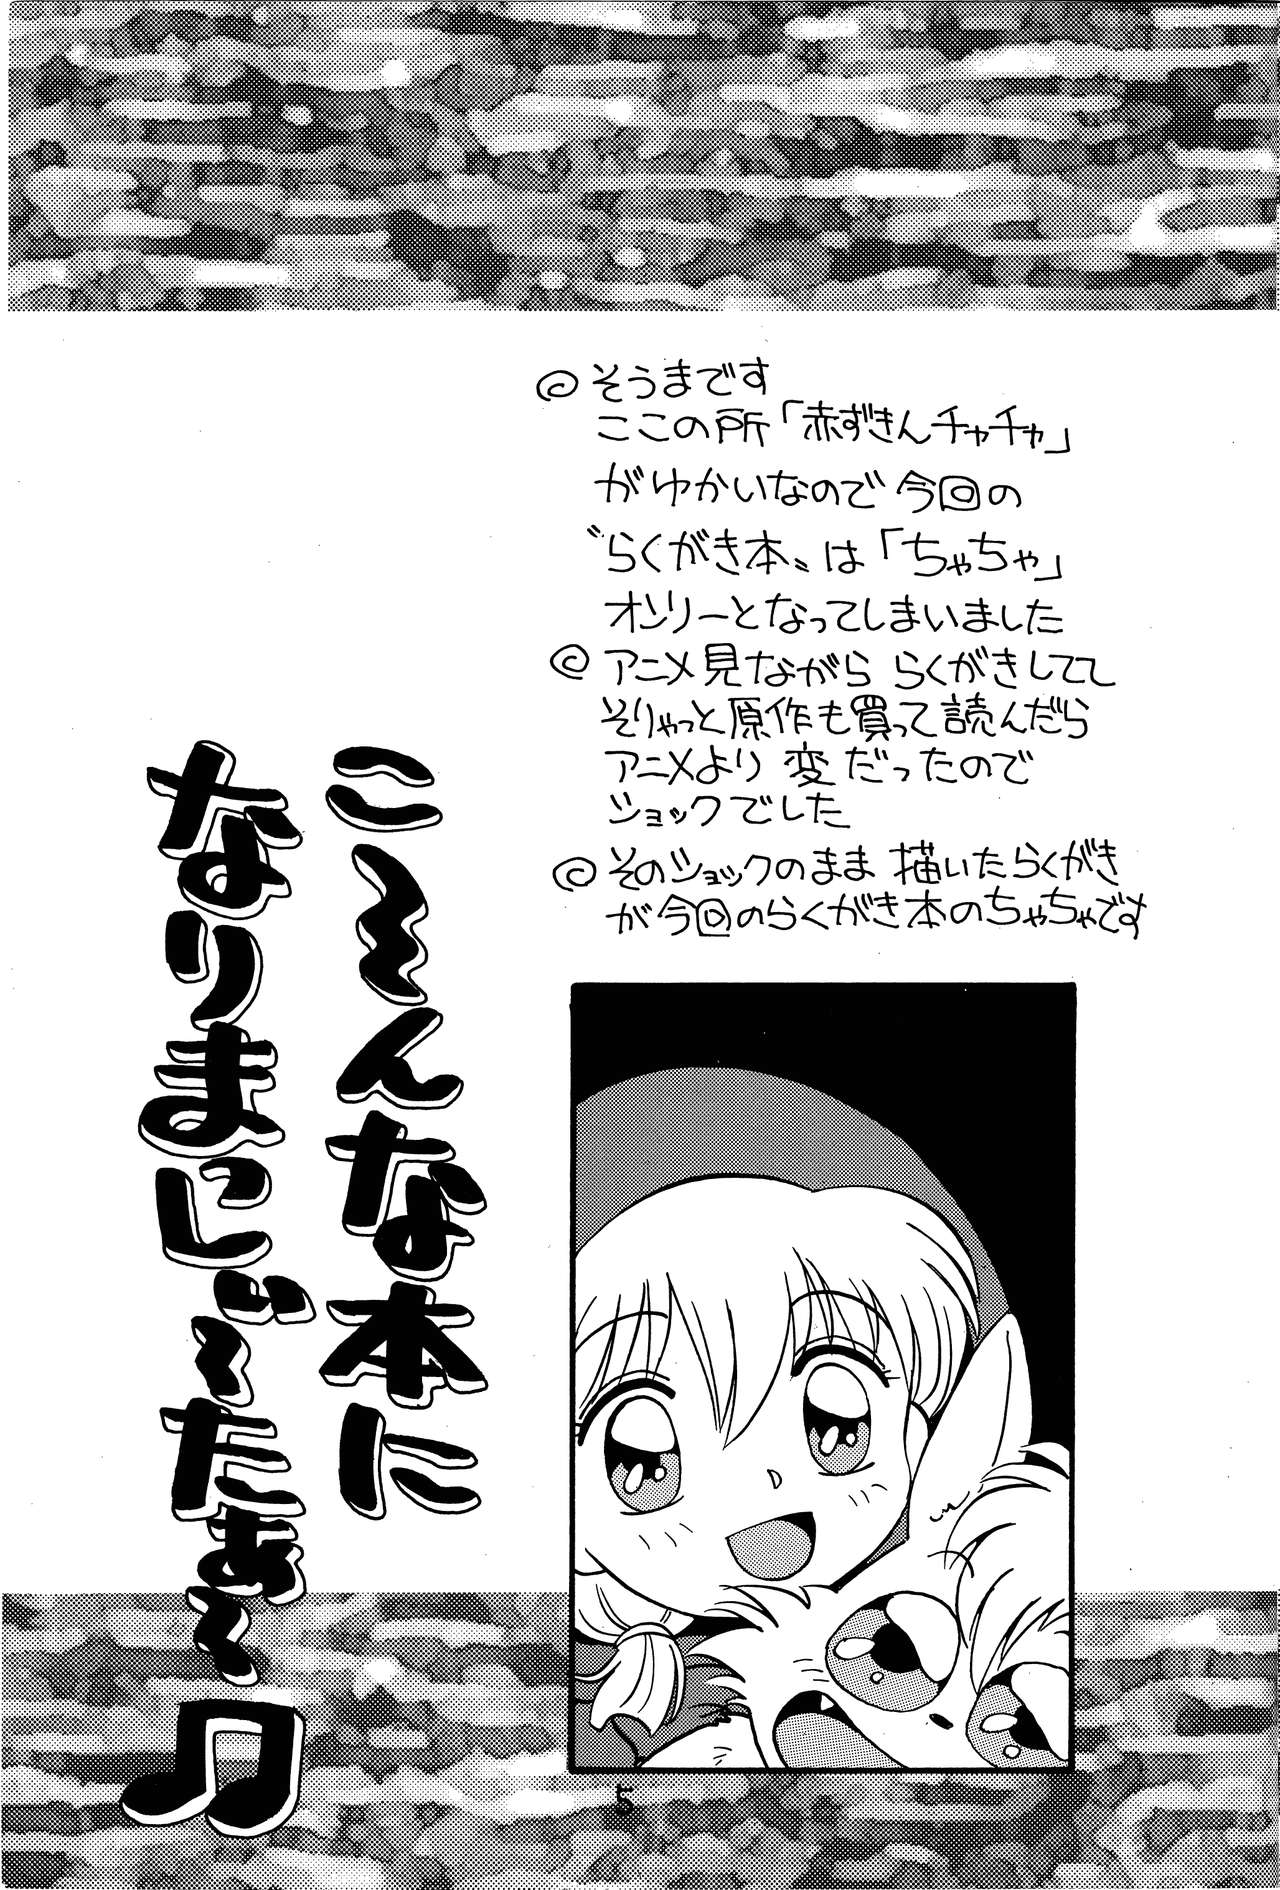 ◎そうまです
ここの所「赤ずきんチャチャ」
がゆかいなので今回の
〝らくがき本〟は「ちゃちゃ」
オンリーとなってしまいました
◎アニメ見ながら らくがきしてて
そりゃっと原作も買って読んだら
アニメより変だったので
ショックでした
◎そのショックのまま 描いたらくがき
が今回のらくがき本のちゃちゃです
こ〜んな本に
なりまっしぃ〜たぁ〜♫
5